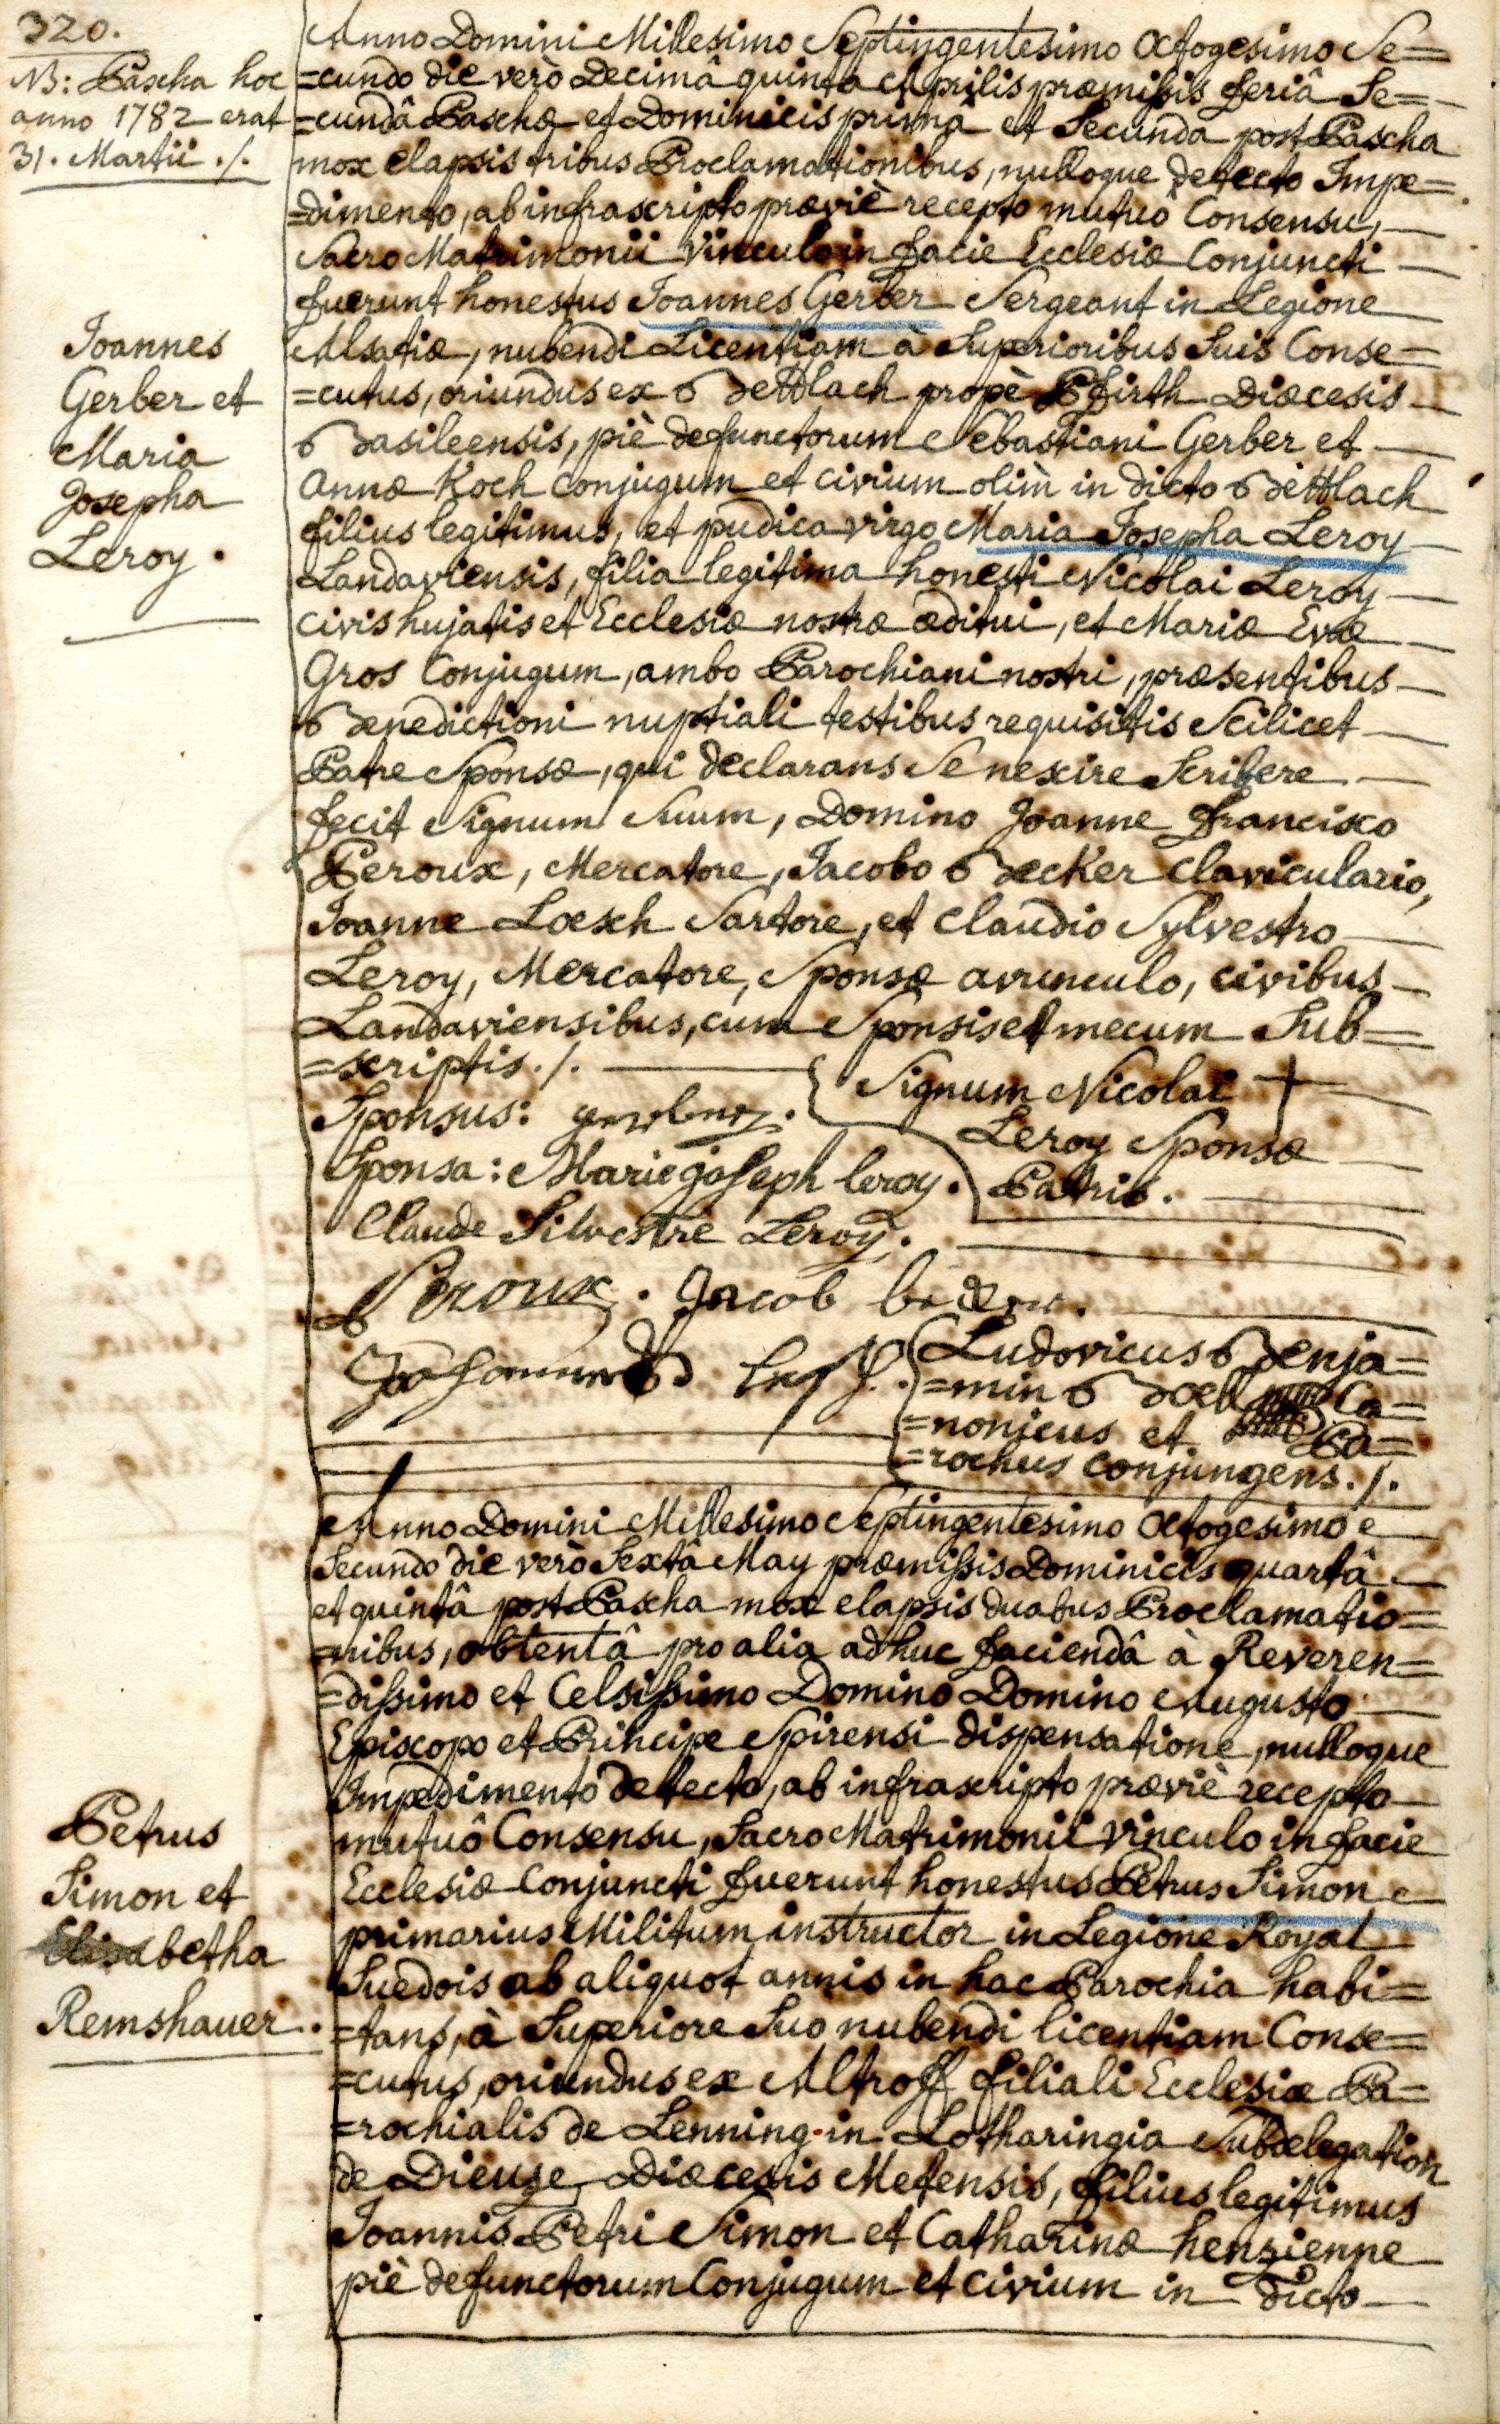 320.
NB: Pascha hoc
anno 1782 erat
31. Martii ./.
Anno Domini Millesimo Septingentesimo Octogesimo Se=
=cundo die verò Decimâ quinta Aprilis præmissis feriâ Se=
=cundâ Paschæ et Dominicis primâ et Secunda post Pascha
mox elapsis tribus Proclamationibus, nulloque detecto Impe=
=dimento, ab infrascripto præviè recepto mutuô Consensu,
Sacro Matrimonii Vinculo in facie Ecclesiæ Conjuncti
fuerunt honestus Joannes Gerber Sergeant in Legione
Alsatiæ, nubendi Licentiam à Superioribus Suis Conse=
=cutus, oriundus ex Bettlach propè Pfirth Diœcesis
Basileensis, piè defunctorum Sebastiani Gerber et
Annæ Koch Conjugum et Civium olim in dicto Bettlach
filius legitimus, et pudica virgo Maria Josepha Leroy
Landaviensis, filia legitima honesti Nicolai Leroy
Civis hujatis et Ecclesiæ nostræ æditui, et Mariæ Evæ
Gros Conjugum, ambo Parochiani nostri, præsentibus
Benedictioni nuptiali testibus requisitis Scilicet
Patre Sponsæ, qui declarans Se nescire Scribere
fecit Signum Suum, Domino Joanne Francisco
Peroux, Mercatore, Jacobo Becker Claviculario,
Joanne Loesch Sartore, et Claudio Sylvestro
Leroy, Mercatore, Sponsæ avunculo, civibus
Landaviensibus, cum Sponsis et mecum Sub=
=scriptis ./.
Joannes
Gerber et
Maria
Josepha
Leroy.
Signum Nicolai
Leroy Sponsæ
Patris.
Sponsus: gerber.
Sponsa: Marie joseph leroy.
Claude Silvestre Leroy.
Peroux. Jacob
Ludovicus Benja=
=min Boell Ca=
=nonicus et Pa=
=rochus conjungens ./.
Anno Domini Millesimo Septingentesimo Octogesimo
Secundo die verò Sextâ May præmissis Dominicis quartâ
et quintâ post Pascha mox elapsis duabus Proclamatio=
=nibus, obtentâ pro alia adhuc faciendâ à Reveren=
=dissimo et Celsissimo Domino Domino Augusto
Episcopo et Principe Spirensi dispensatione, nulloque
Impedimento detecto, ab infrascripto præviè recepto
mutuô Consensu, Sacro Matrimonii vinculo in facie
Ecclesiæ Conjuncti fuerunt honestus Petrus Simon
primarius Militum instructor in Legione Royal
Suedois ab aliquot annis in hac Parochia habi=
=tans, à Superiore Suo nubendi licentiam Conse=
=cutus, oriundus ex Altroff filiali Ecclesiæ Pa=
=rochialis de Lenning in Lotharingia Subdelegation
de Dieuze Diœcesis Metensis, filius legitimus
Joannis Petri Simon et Catharinæ henzienne
piè defunctorum Conjugum et Civium in dicto
Petrus
Simon et
Elisabetha
Remshauer.